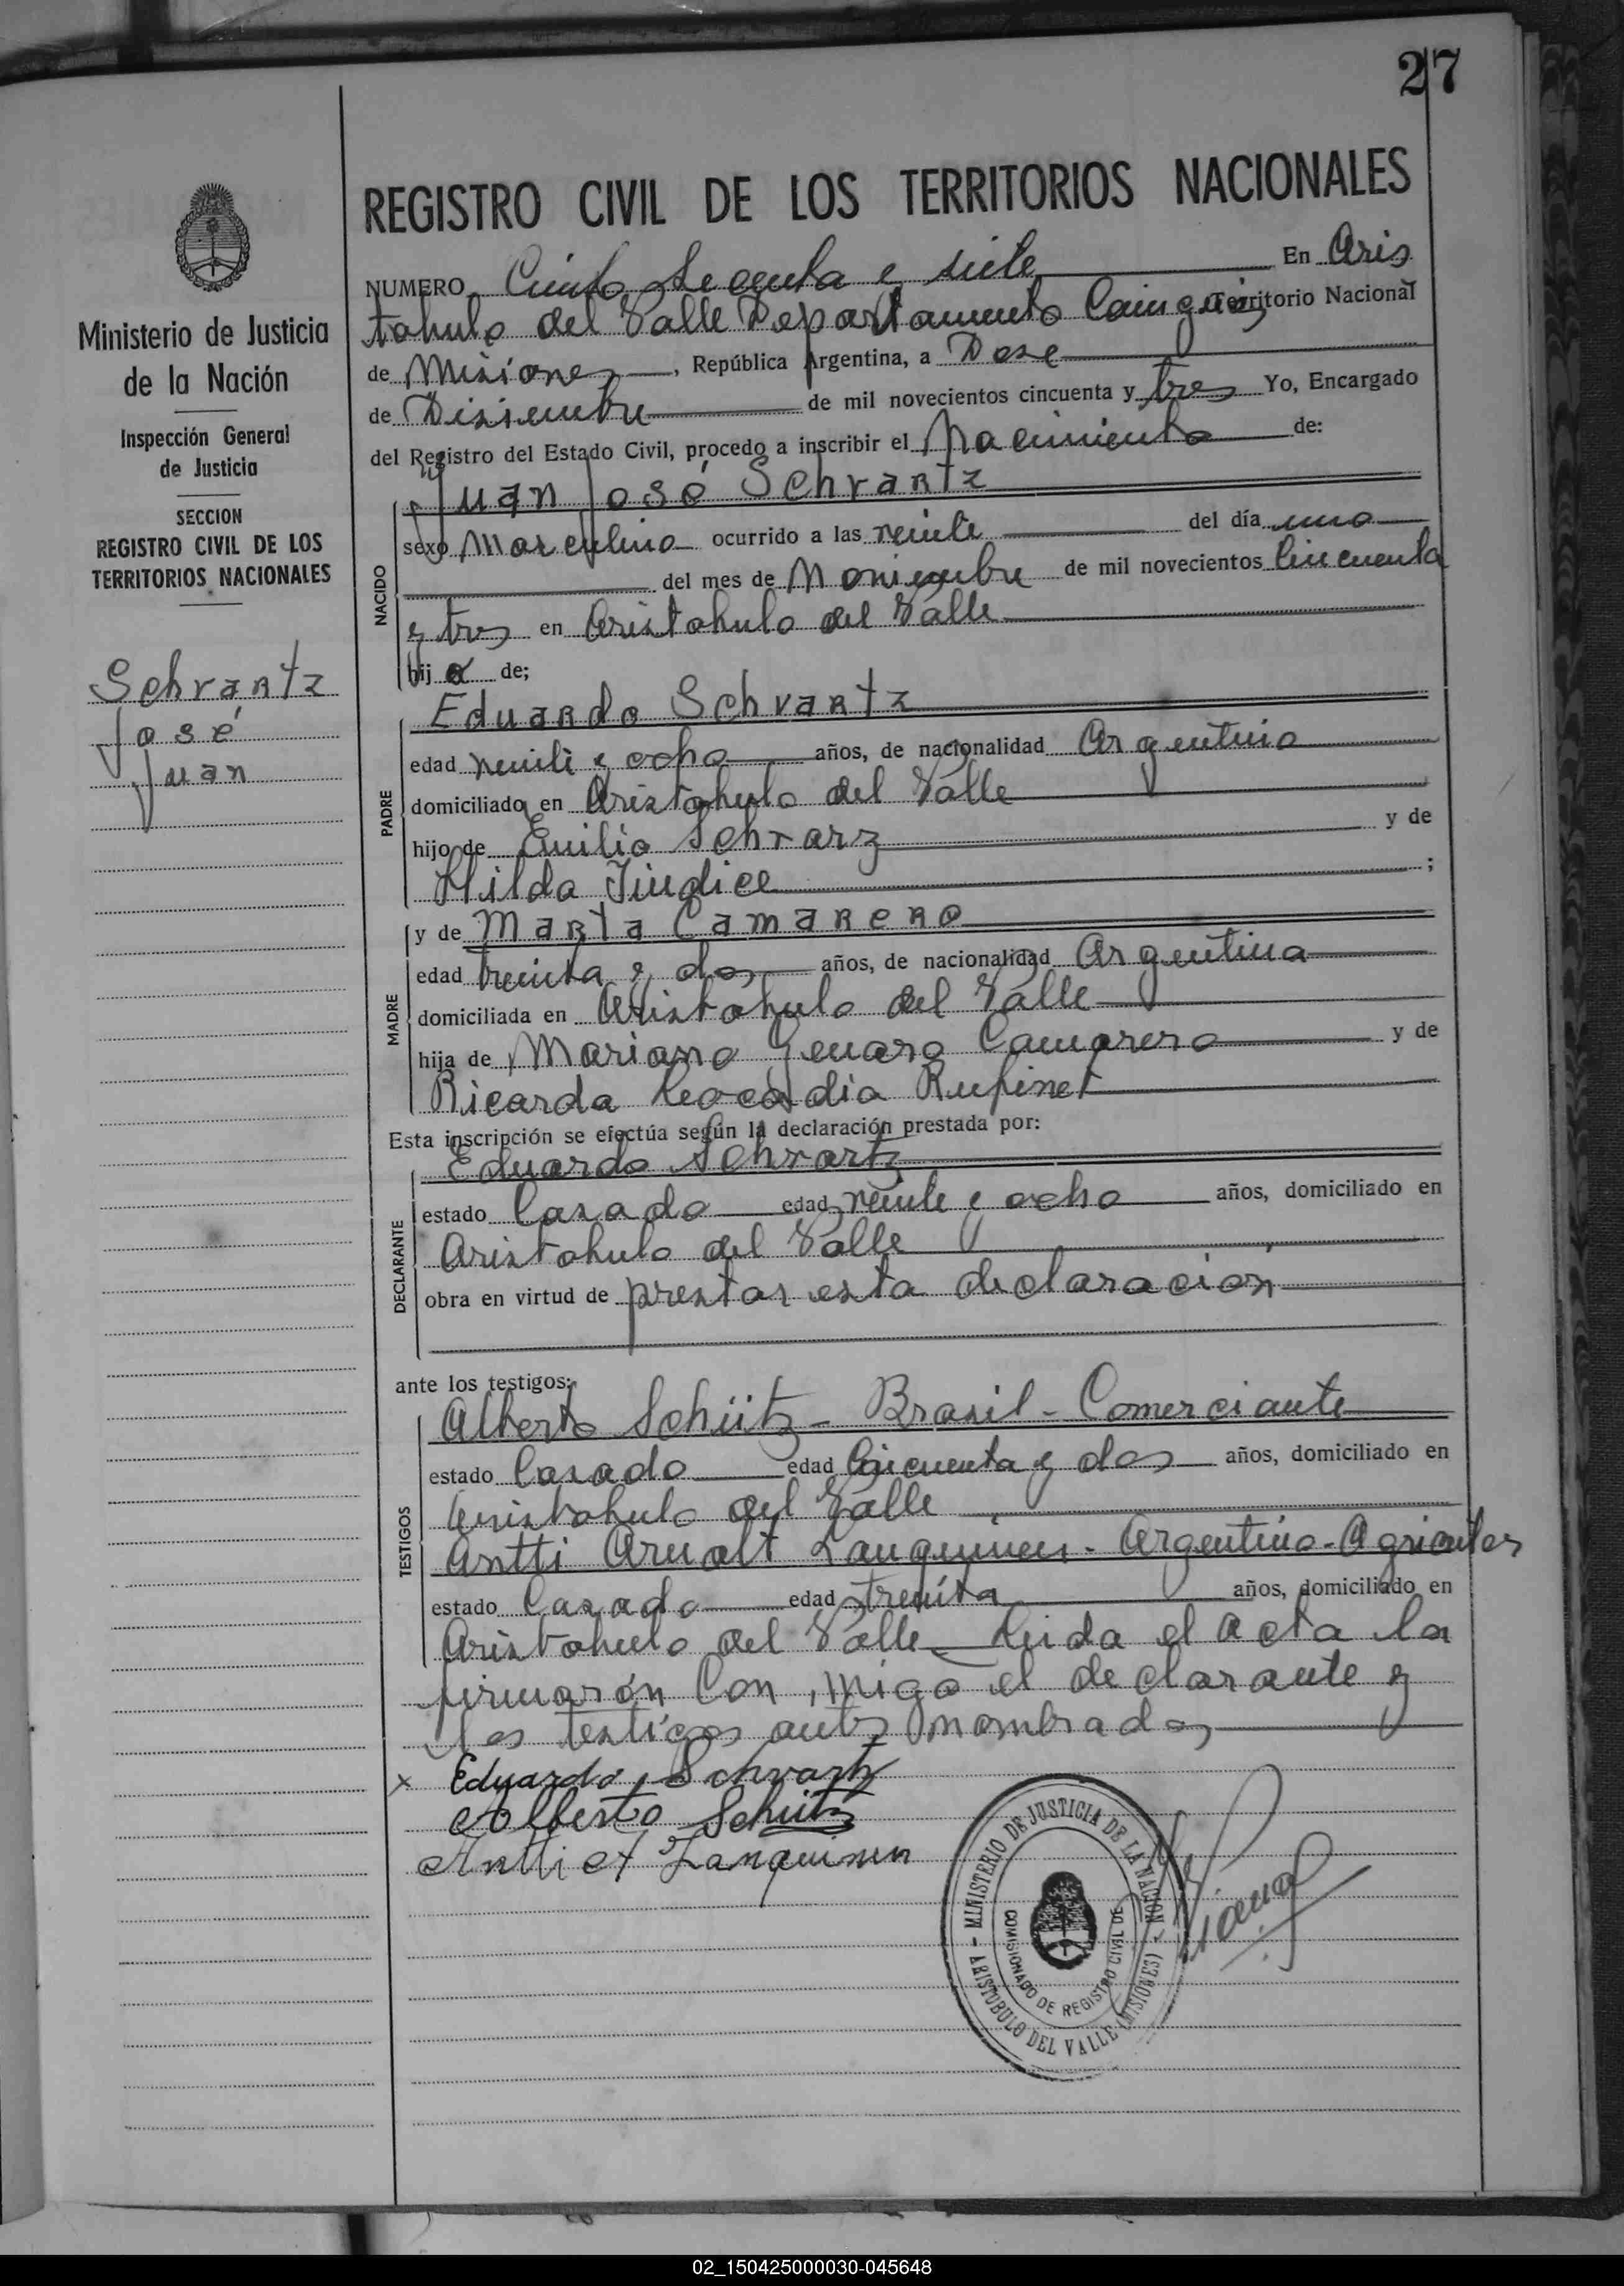 27
REGISTRO CIVIL DE LOS TERRITORIOS NACIONALES
Ministerio de Justicia
de la Nación
Inspección General
de Justicia
SECCION
REGISTRO CIVIL DE LOS
TERRITORIOS NACIONALES
Schvartz
José
Juan
NUMERO Ciento y siete En Aris
tobulo del Valle Departamento Cainguas Territorio Nacional
de Misiones, República Argentina, a Dose
de Disiembre de mil novecientos cincuenta y tres Yo, Encargado
del Registro del Estado Civil, procedo a inscribir el Nacimiento de:
NACIDO
Juan José Schvartz
sexo Masculino ocurrido a las veinte del día uno
del mes de Noviembre de mil novecientos Cincuenta
y tres en Aristobulo del Valle
hijo de;
PADRE
Eduardo Schvartz
edad veinte y ocho años, de nacionalidad Argentino
domiciliado en Aristobulo del Valle
hijo de Emilio Schvarz y de
Hilda ;
MADRE
y de Marta Camarero
edad treinta y dos años, de nacionalidad Argentina
domiciliada en Aristobulo del Valle
hija de Mariano Genaro Camarero y de
Ricarda Leocadia Rufinet
Esta inscripción se efectúa según la declaración prestada por:
DECLARANTE
Eduardo Schvartz
estado Casado edad veinte y ocho años, domiciliado en
Aristobulo del Valle
obra en virtud de prestar esta declaración
ante los testigos:
TESTIGOS
Alberto Schütz - Brasil - Comerciante
estado Casado edad Cincuenta y dos años, domiciliado en
Aristobulo del Valle
Antti Arvolt Lanquinen - Argentino - Agricultor
estado Casado edad treinta años, domiciliado en
Aristobulo del Valle Leida el acta la
firmarón Con migo el declarante y
los testigos antes nombrados
x Eduardo Schvartz
Alberto Schütz
Antti A Lanquinen
- MINISTERIO DE JUSTICIA DE LA NACION -
ARISTOBULO DEL VALLE (MISIONES)
COMISIONADO DE REGISTRO CIVIL DE
02_150425000030-045648